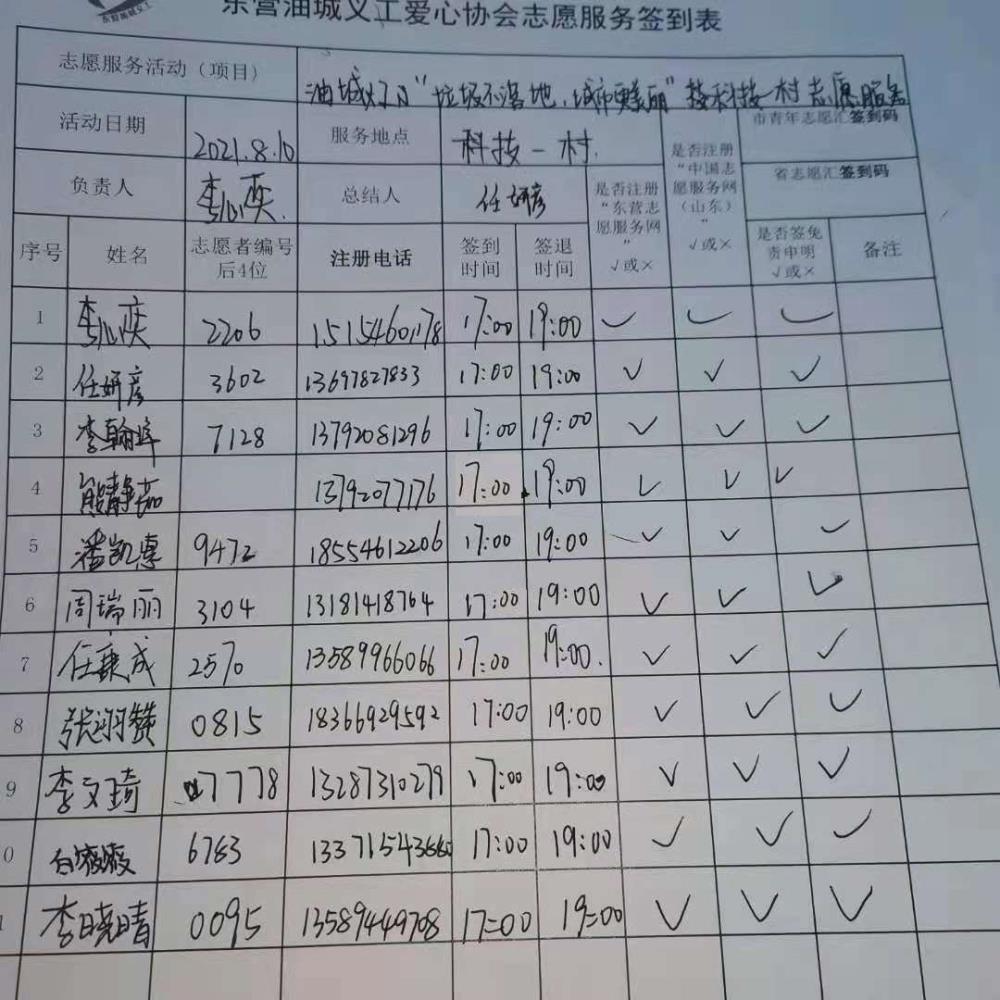 东营油城义工
东营油城义工爱心协会志愿服务签到表
志愿服务活动（项目） 油城 "垃圾不落地，城市更美丽" 科技一村志愿服务
活动日期 2021.8.10 服务地点 科技一村. 是否注册“中国志愿服务网（山东）” √或× 市青年志愿汇签到码
负责人 李心奕. 总结人 任妍彦 是否注册“东营志愿服务网” √或× 省志愿汇签到码
序号 姓名 志愿者编号后4位 注册电话 签到时间 签退时间 是否签免责申明 √或× 备注
1 李心奕 2206 15154601178 17:00 19:00 ✓ ✓ ✓
2 任妍彦 3602 13697827833 17:00 19:00 ✓ ✓ ✓
3 李翰 7128 13792081296 17:00 19:00 ✓ ✓ ✓
4 熊静茹 13792077176 17:00 19:00 ✓ ✓ ✓
5 潘凯惠 9472 18554612206 17:00 19:00 ✓ ✓ ✓
6 周瑞丽 3104 13181418764 17:00 19:00 ✓ ✓ ✓
7 任康成 2570 13589966066 17:00 19:00. ✓ ✓ ✓
8 张翊赞 0815 18366929592 17:00 19:00 ✓ ✓ ✓
9 李文琦 7778 13287310279 17:00 19:00 ✓ ✓ ✓
0 白 6763 17:00 19:00 ✓ ✓ ✓
1 李晓晴 0095 13589449708 17:00 19:00 ✓ ✓ ✓